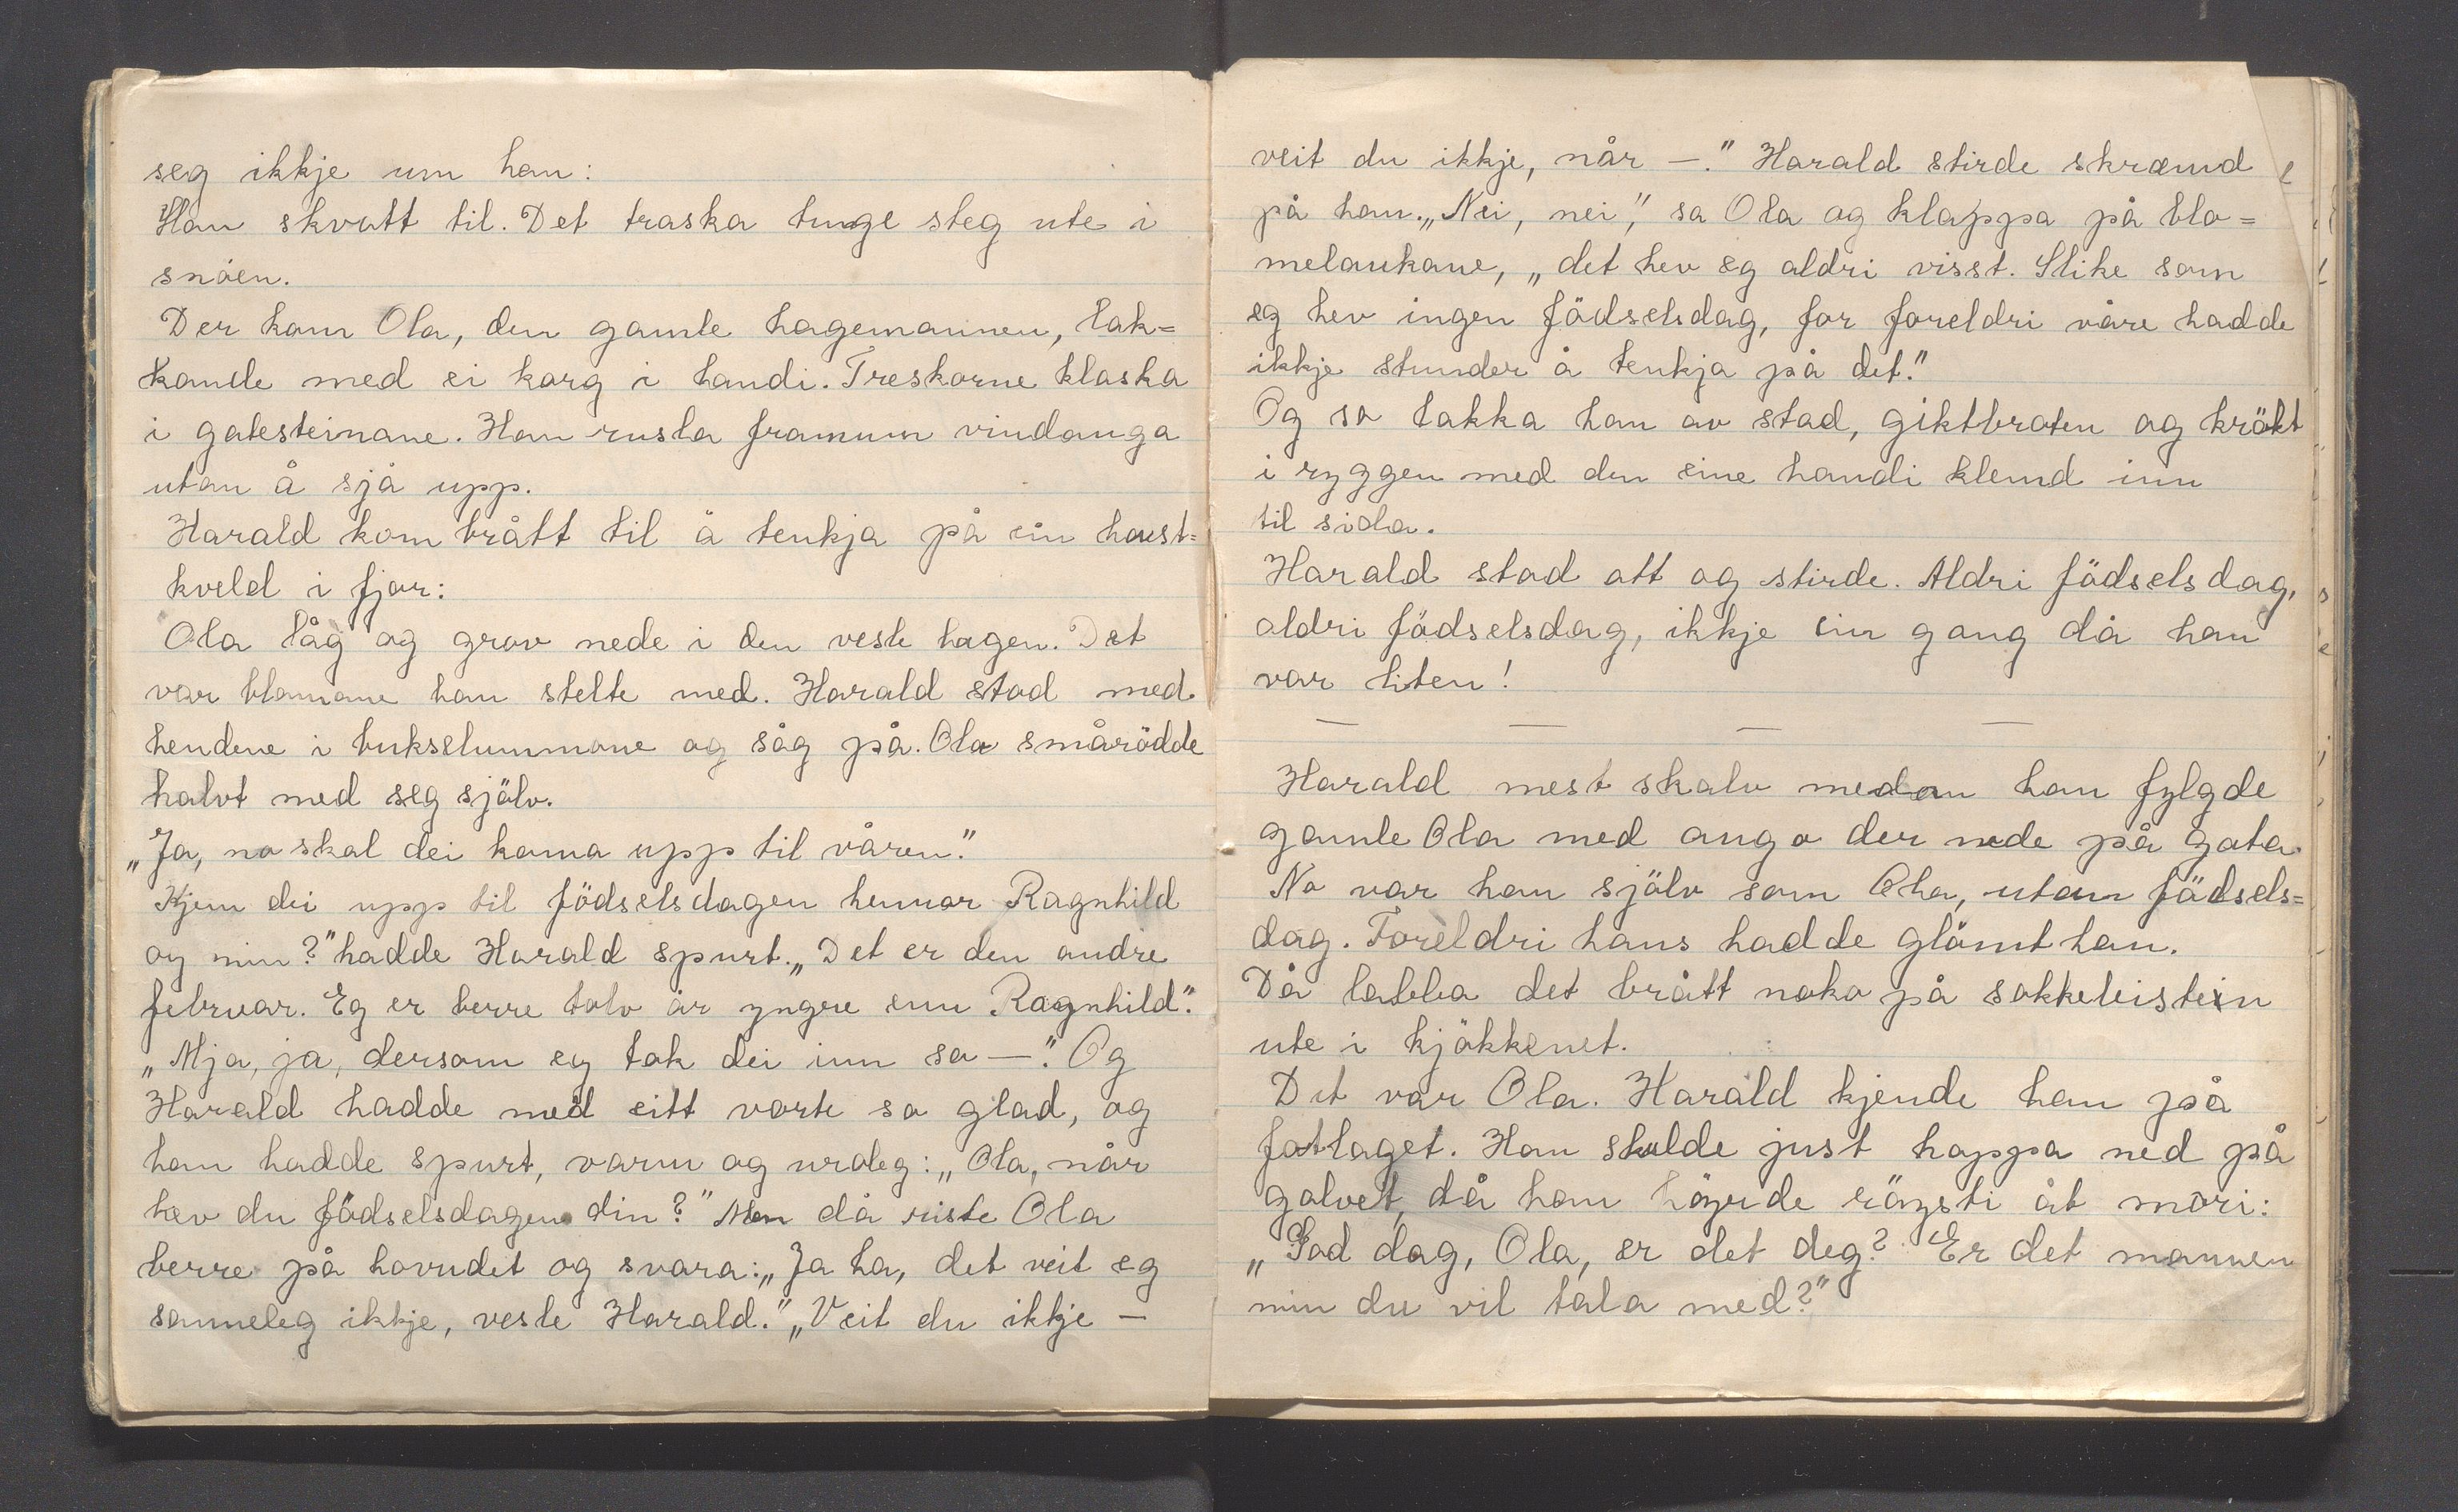 seg ikkje um han:
Han skvatt til. Det traska tunge steg ute i
snöen.
Der kom Ola, den gamle hagemannen, lak=
kande med ei korg i handi. Treskorne klaska
i gatesteinane. Han rusla framum vindauga
utan å sjå upp.
Harald kom brått til å tenkja på ein haust=
kveld i fjor:
Ola låg og grov nede i den vesle hagen. Det
var blomane han stelte med. Harald stod med
hendene i bukselummone og såg på. Ola smårödde
halvt med seg sjölv.
„Ja, no skal dei koma upp til våren."
Kjem dei upp til födselsdagen hennar Ragnhild
og min?" hadde Harald spurt. „Det er den andre
februar. Eg er berre tolv år yngre enn Ragnhild."
„Mja, ja, dersom eg tok dei inn so —." Og
Harald hadde med eitt vorte so glad, og
han hadde spurt, varm og uroleg: „Ola, når
hev du födselsdagen din?" Men då riste Ola
berre på hovudet og svara: „Ja ha, det veit eg
sanneleg ikkje, vesle Harald." „Veit du ikkje —
veit du ikkje, når —." Harald stirde skræmd
på han. „Nei, nei," sa Ola og klappa på blo=
melaukane, „det hev eg aldri visst. Slike som
eg hev ingen födselsdag, for foreldri våre hadde
ikkje stunder å tenkja på det."
Og so lakka han av stad, giktbroten og krökt
i ryggen med den eine handi klemd inn
til sida.
Harald stod att og stirde. Aldri födselsdag,
aldri födselsdag, ikkje ein gong då han
var liten!
— — — —
Harald mest skalv medan han fylgde
gamle Ola med augo der nede på gata.
No var han sjölv som Ola, utan födsels=
dag. Foreldri hans hadde glömt han.
Då labba det brått noko på sokkeleistein
ute i kjökkenet.
Det var Ola. Harald kjende han på
fotlaget. Han skulde just hoppa ned på
golvet, då han höyrde röysti åt mori:
„God dag, Ola, er det deg? Er det mannen
min du vil tala med?"